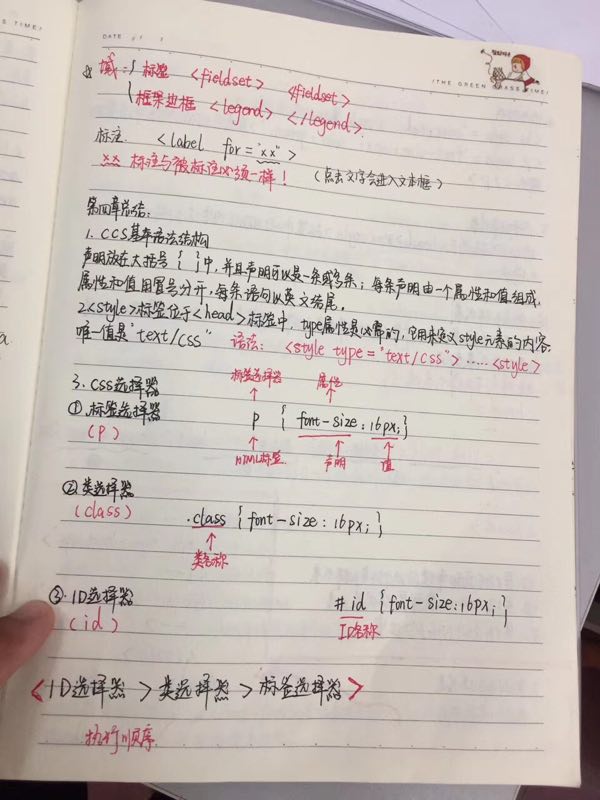 DATE
THE GREEN GRASS TIME/
域: 标签 <fieldset> <fieldset>
框架边框 <legend> </legend>
标注. <label for="xx">
※※ 标注与被标注必须一样！ （点击文字会进入文本框）
第四章总结:
1. CCS基本语法结构
声明放在大括号{ }中,并且声明可以是一条或多条；每条声明由一个属性和值组成,
属性和值用冒号分开,每条语句以英文结尾.
2.<style>标签位于<head>标签中, type属性是必需的,它用来定义style元素的内容,
唯一值是"text/css" 语法: <style type="text/css">.....<style>
3. CSS选择器
标签选择器 属性
①.标签选择器 p { font-size: 16px; }
(P)
HTML标签. 声明 值
②类选择器
(class) .class { font-size: 16px; }
类名称
③.ID选择器 #id { font-size: 16px; }
(id) ID名称
<ID选择器>类选择器>标签选择器>
执行顺序